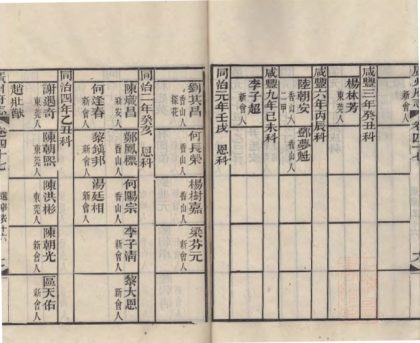 咸豐三年癸丑科
楊林芳 東莞人
咸豐六年丙辰科
陸朝安 香山人 二甲
鄧夢魁 新安人
咸豐九年己未科
李子超 新會人
同治元年壬戌 恩科
劉其昌 香山人 探花
何長榮 香山人
楊樹嘉 香山人
梁芬元 新會人
同治二年癸亥 恩科
陳 昌 新安人
鄭鳳標 香山人
何陽宗 香山人
李子清 新會人
黎大恩 新會人
何逢春 新會人
黎 邦 新會人
湯廷相 新會人
同治四年乙丑科
謝遇奇 東莞人
陳朝熙 東莞人
陳洪彬 東莞人
陳朝光 新會人
區天佑 新會人
趙
卷四十七